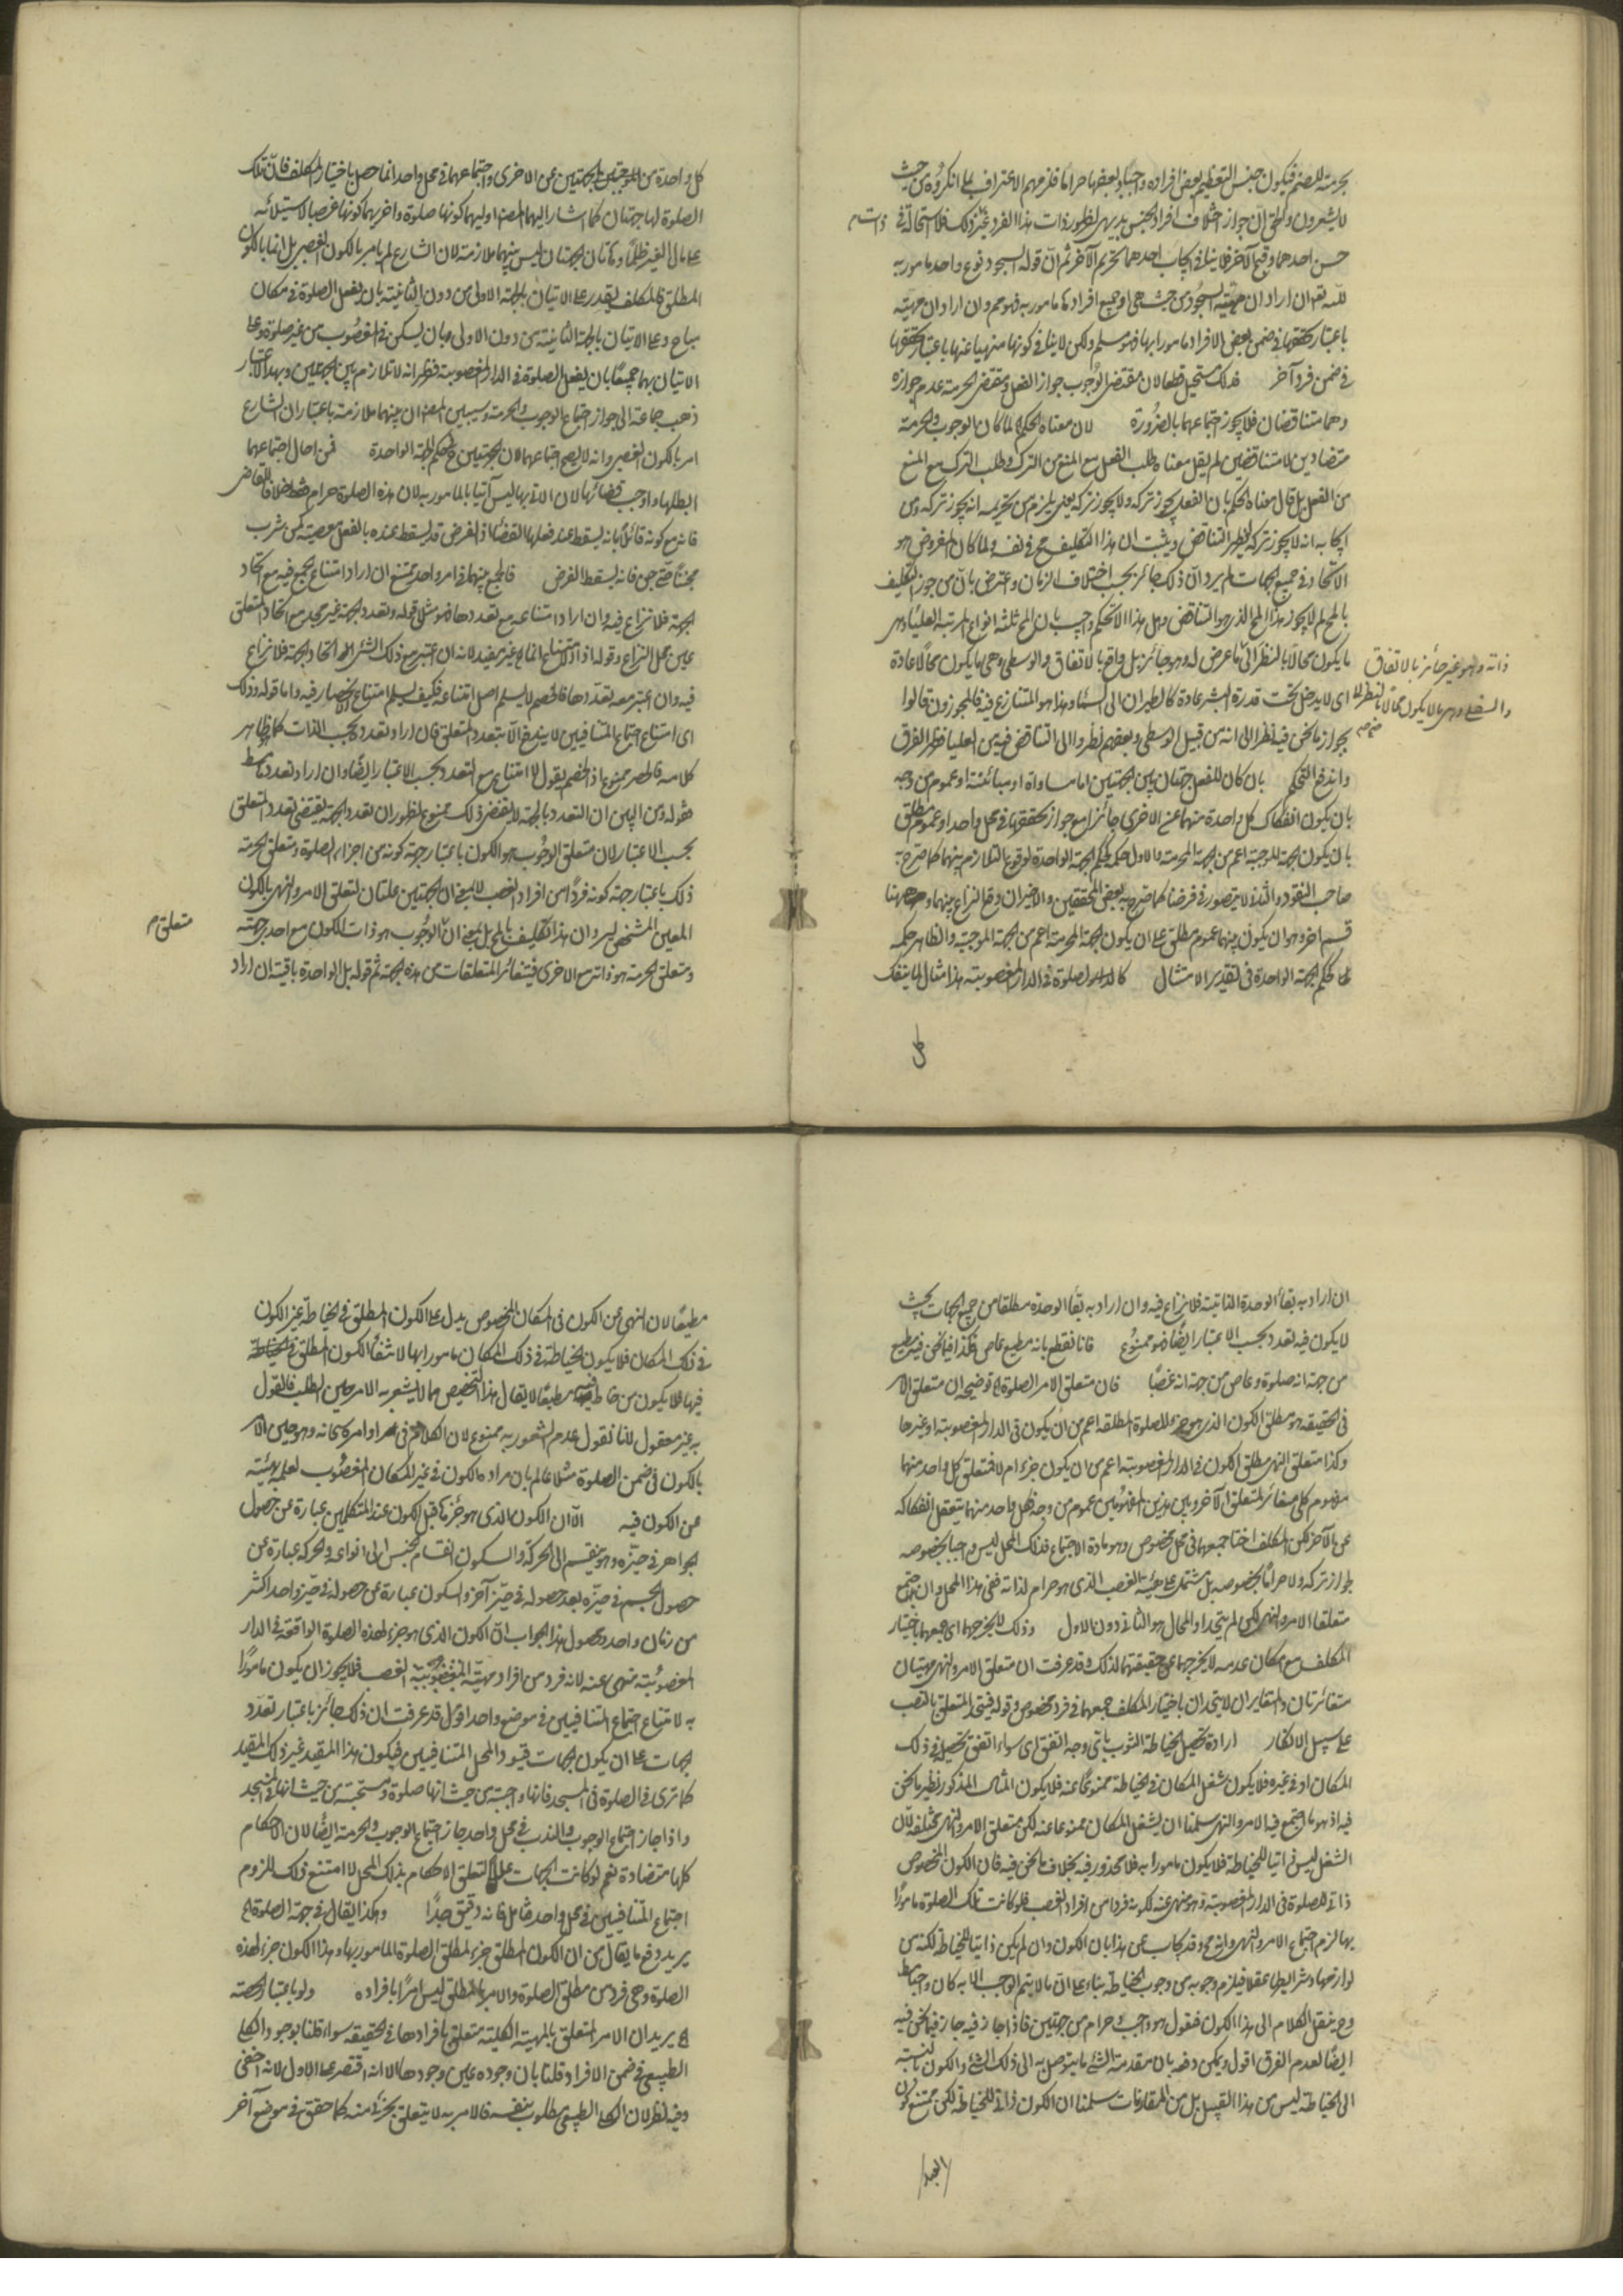 بحرمته للصنم فيكون جنس التعظيم بعض افراده واجبا وبعضها حراما فلزمهم الاعتراف بما انكروه من حيث
لا يشعرون والحق ان جواز اختلاف افراد الجنس بديهى لظهور ذات هذا الفرد غير ذلك فلا استحالة فى
حسن احدهما وقبح الآخر فلا ينافى ايجاب احدهما تحريم الآخر ثم ان قوله السجود نوع واحد مامور به
لله تع ان اراد ان مهيته السجود من حيث هى او جميع افرادها مامور به فهو مم وان اراد ان مهيته
باعتبار تحققها فى ضمن بعض الافراد مامورا بها فهو مسلم ولكن لا ينافى كونها منهيا عنها باعتبار تحققها
فى ضمن فرد آخر فذلك مستحيل قطعا لان مقتضى الوجوب جواز الفعل ومقتضى الحرمة عدم جوازه
وهما متناقضان فلا يجوز اجتماعهما بالضرورة لان معناه الحكم لما كان الوجوب والحرمة
متضادين لا متناقضين لم يقل معناه طلب الفعل مع المنع من الترك وطلب الترك مع المنع
من الفعل بل قال معناه الحكم بان الفعل يجوز تركه ولا يجوز تركه يعنى يلزم من تحريمه انه يجوز تركه ومن
ايجابه انه لا يجوز تركه ليظهر التناقض ويثبت ان هذا التكليف مح فى نفسه ولما كان المفروض هو
الاتحاد فى جميع الجهات لم يرد ان ذلك جائز بحسب اختلاف الزمان واعترض بان من جوز التكليف
بالمح لم لا يجوز هذا المح الذى هو التناقض وهل هذا الا تحكم واجيب بان المح ثلثة انواع المرتبة العليا وهى
ما يكون محالا بالنظر الى ما عرض له وهو جائز بل واقع بالاتفاق والوسطى وهى ما يكون محالا عادة
اى لا يدخل تحت قدرة البشر عادة كالطيران الى السماء وهذا هو المتنازع فيه فالمجوزون قالوا
بجواز ما نحن فيه نظرا الى انه من قبيل الوسطى وبعضهم نظروا الى التناقض فهو من العليا فظهر الفرق
واندفع التحكم بان كان للفعل جهتان بين الجهتين اما مساواة او مبائنة او عموم من وجه
بان يكون انفكاك كل واحدة منهما عن الاخرى جائزا مع جواز تحققهما فى محل واحد او عموم مطلق
بان يكون الجهة الموجبة اعم من الجهة المحرمة والاول حكمه حكم الجهة الواحدة لوقوع التلازم بينهما كما صرح به
صاحب النقود والثانى لا يتصور فى فرضنا كما صرح به بعض المحققين والاخيران وقع النزاع بينهما وههنا
قسم اخر وهو ان يكون بينهما عموم مطلق على ان يكون الجهة المحرمة اعم من الجهة الموجبة والظاهر حكمه
حكم الجهة الواحدة فى تقدير الامتثال كالصلوة فى الدار المغصوبته هذا مثال لما ينفك
ذاته وهو غير جائز بالاتفاق
والسفلى وهى ما لا يكون محالا بالنظر الى
كل واحدة من الموجبتين الجهتين عن الاخرى واجتماعهما فى محل واحد انما حصل باختيار المكلف فان تلك
الصلوة لها جهتان كما اشار اليهما المص اوليهما كونها صلوة واخريهما كونها غصبا لاستيلائه
على مال الغير ظلما وهاتان الجهتان ليس بينهما ملازمة لان الشارع لم يامر بالكون الغصبى بل انما بالكون
المطلق فالمكلف يقدر على الاتيان بالجهة الاولى من دون الثانية بان يفعل الصلوة فى مكان
مباح وعلى الاتيان بالجهة الثانية من دون الاولى وبان يسكن فى المغصوب من غير صلوة وعلى
الاتيان بهما جميعا بان يفعل الصلوة فى الدار المغصوبة فظهر انه لا تلازم بين الجهتين وبهذا الاعتبار
ذهب جماعة الى جواز اجتماع الوجوب والحرمة وسيبين المص ان بينهما ملازمة باعتبار ان الشارع
امر بالكون الغصبى وانه لا يصح اجتماعهما لان الجهتين فى حكم الجهة الواحدة فمن احال اجتماعهما
ابطلها واوجب قضائها لان الاتى بها ليس آتيا بالمامور به لان هذه الصلوة حرام فقط خلافا للقاضى
فانه مع كونه قائلا بانه يسقط عند فعلها القضاء اذ الفرض قد يسقط عنده بالفعل معصية كمن شرب
مجننا حتى جن فانه يسقط الفرض فالجمع بينهما فى امر واحد يمتنع ان اراد امتناع الجمع فيه مع اتحاد
الجهة فلا نزاع فيه وان اراد امتناعه مع تعددها فهو مثل قوله وتعدد الجهة غير مجد مع اتحاد المتعلق
عين محل النزاع وقوله اذ الامتناع انما غير مفيد لانه ان اعتبر مع ذلك الشئ اتحاد الجهة فلا نزاع
فيه وان اعتبر معه تعددها فالخصم لا يسلم اصل امتناعه فكيف يسلم امتناع الانحصار فيه واما قوله وذلك
اى امتناع اجتماع المتنافيين لا يندفع الا بتعدد المتعلق فان اراد تعدده بحسب الذات كما هو ظاهر
كلامه فالحصر ممنوع اذ الخصم يقول لا امتناع مع التعدد بحسب الاعتبار ايضا وان اراد تعدده
فقوله ومن البين ان التعدد بالجهة لا يقتضى ذلك ممنوع لظهور ان تعدد الجهة يقتضى تعدد المتعلق
بحسب الاعتبار لان متعلق الوجوب هو الكون باعتبار جهة كونه من اجزاء الصلوة ومتعلق الحرمة
ذلك باعتبار جهة كونه فردا من افراد الغصب لا بمعنى ان الجهتين علتان لتعلق الامر والنهى بالكون
المعين المشخص ليرد ان هذا تكليف بالمح بل بمعنى ان الوجوب هو ذات الكون مع احد جهته
متعلق م
ومتعلق الحرمة هو ذاته مع الاخرى فيتغائر المتعلقات من هذه الجهة ثم قوله بل الواحدة باقية ان اراد
ان اراد به بقاء الوحدة الذاتية فلا نزاع فيه وان اراد به بقاء الوحدة مطلقا من جميع الجهات بحيث
لا يكون فيه تعدد بحسب الاعتبار ايضا فهو ممنوع فانا نقطع بانه مطيع عاص فكذا فيما نحن فيه مطيع
من جهة انه صلوة وعاص من جهة انه غصبا فان متعلق الامر الصلوة الخ توضيحه ان متعلق الامر
فى الحقيقة هو مطلق الكون الذى هو جزء للصلوة المطلقة اعم من ان يكون فى الدار المغصوبة او غيرها
وكذا متعلق النهى مطلق الكون فى الدار المغصوبة اعم من ان يكون جزءا ام لا فمتعلق كل واحد منهما
مفهوم كلى مغائر لمتعلق الآخر وبين هذين المفهومين عموم من وجه فكل واحد منهما يتعقل انفكاكه
عن الآخر لكن المكلف اختار جمعهما فى محل مخصوص وهو مادة الاجتماع فذلك المحل ليس واجبا بخصوصه
لجواز تركه ولا حراما بخصوصه بل مشتمل على مهية الغصب الذى هو حرام لذاته ففى هذا المحل وان اجتمع
متعلقا الامر والنهى لكن لم يتحدا والمحال هو الثانى دون الاول وذلك لا يخرجهما اى جمعهما باختيار
المكلف مع امكان عدمه لا يخرجهما عن حقيقتهما لذلك وقد عرفت ان متعلق الامر والنهى مهيتان
متغائرتان والمتغايران لا يتحدان باختيار المكلف جمعهما فى فرد مخصوص وقوله فيتحد المتعلق بالنصب
على سبيل الانكار ارادة تحصيل خياطة الثوب باى وجه اتفق اى سواء اتفق تحصيل فى ذلك
المكان او فى غيره فلا يكون شغل المكان فى الخياطة ممنوعا عنه فلا يكون المثال المذكور نظير ما نحن
فيه اذ هو ما اجتمع فيه الامر والنهى سلمنا ان يشغل المكان ممنوعا عنه لكن متعلق الامر والنهى مختلفه لان
الشغل ليس ذاتيا للخياطة فلا يكون مامورا به فلا محذور فيه بخلاف ما نحن فيه فان الكون المخصوص
ذاتى للصلوة فى الدار المغصوبة وهو منهى عنه لكونه فردا من افراد الغصب فلو كانت تلك الصلوة مامورا
بها لزم اجتماع الامر والنهى وانه مح وقد يجاب عن هذا بان الكون وان لم يكن ذاتيا للخياطة لكنه من
لوازمها وشرايطها عقلا فيلزم وجوبه من وجوب الخياطة بناء على ان ما لا يتم الواجب الا به كان واجبا
وح ينقل الكلام الى هذا الكون فنقول هو واجب وحرام من جهتين فاذا جاز فيه جاز فيما نحن فيه
ايضا لعدم الفرق اقول ويمكن دفعه بان مقدمة الشئ ما يتوصل به الى ذلك الشئ والكون بالنسبة
الى الخياطة ليس من هذا القبيل بل من المقارنات سلمنا ان الكون ذاتى للخياطة لكن يمتنع كون
مطيعا لان النهى عن الكون فى المكان المخصوص يدل على الكون المطلق فى الخياطة غير الكون
فى ذلك المكان فلا يكون الخياطة فى ذلك المكان مامورا بها لانتفاء الكون المطلق
فيها فلا يكون من خاط فيه مطيعا لا يقال هذا التخصيص مما لا يشعر به الامر حين الطلب فالقول
به غير معقول لانا نقول عدم الشعور به ممنوع لان الكلام فى اوامره سبحانه وهو حين الامر
بالكون فى ضمن الصلوة مثلا عالم بان مراده الكون فى غير المكان المغصوب لعلمه بنهيه
عن الكون فيه الا ان الكون الذى هو جزء ما قبل الكون عند المتكلمين عبارة عن حصول
الجواهر فى حيزه وهو ينقسم الى الحركة والسكون انقسام الجنس الى انواعه والحركة عبارة عن
حصول الجسم فى حيزه بعد حصوله فى حيز آخر والسكون عبارة عن حصوله فى حيز واحد اكثر
من زمان واحد ومحصول هذا الجواب ان الكون الذى هو جزء لهذه الصلوة الواقعة فى الدار
المغصوبة منهى عنه لانه فرد من افراد مهية الغصب فلا يجوز ان يكون مامورا
به لامتناع اجتماع المتنافيين فى موضع واحد اقول قد عرفت ان ذلك جائز باعتبار تعدد
الجهات على ان يكون الجهات قيود المحل المتنافيين فيكون هذا المقيد غير ذلك المقيد
كما ترى فى الصلوة فى المسجد فانها واجبة من حيث انها صلوة ومستحبة من حيث انها فى المسجد
واذا جاز اجتماع الوجوب والندب فى محل واحد جاز اجتماع الوجوب والحرمة ايضا لان الاحكام
كلها متضادة نعم لو كانت الجهات عللا لتعلق الاحكام بذلك المحل لامتنع ذلك للزوم
اجتماع المتنافيين فى محل واحد فتامل فانه دقيق جدا وهكذا يقال فى جهة الصلوة الخ
يريد دفع ما يقال من ان الكون المطلق جزء لمطلق الصلوة المامور بها وهذا الكون جزء لهذه
الصلوة وهى فرد من مطلق الصلوة والامر بالمطلق ليس امرا بافراده ولو باعتبار الحصة
الخ يريد ان الامر المتعلق بالمهية الكلية متعلق بافرادها فى الحقيقة سواء قلنا بوجود الكلى
الطبيعى فى ضمن الافراد او قلنا بان وجوده عين وجودها الا انه اقتصر على الاول لانه اخفى
وفيه نظر لان الكلى الطبيعى مطلوب بنفسه فالامر به لا يتعلق بجزئ منه كما حقق فى موضع آخر